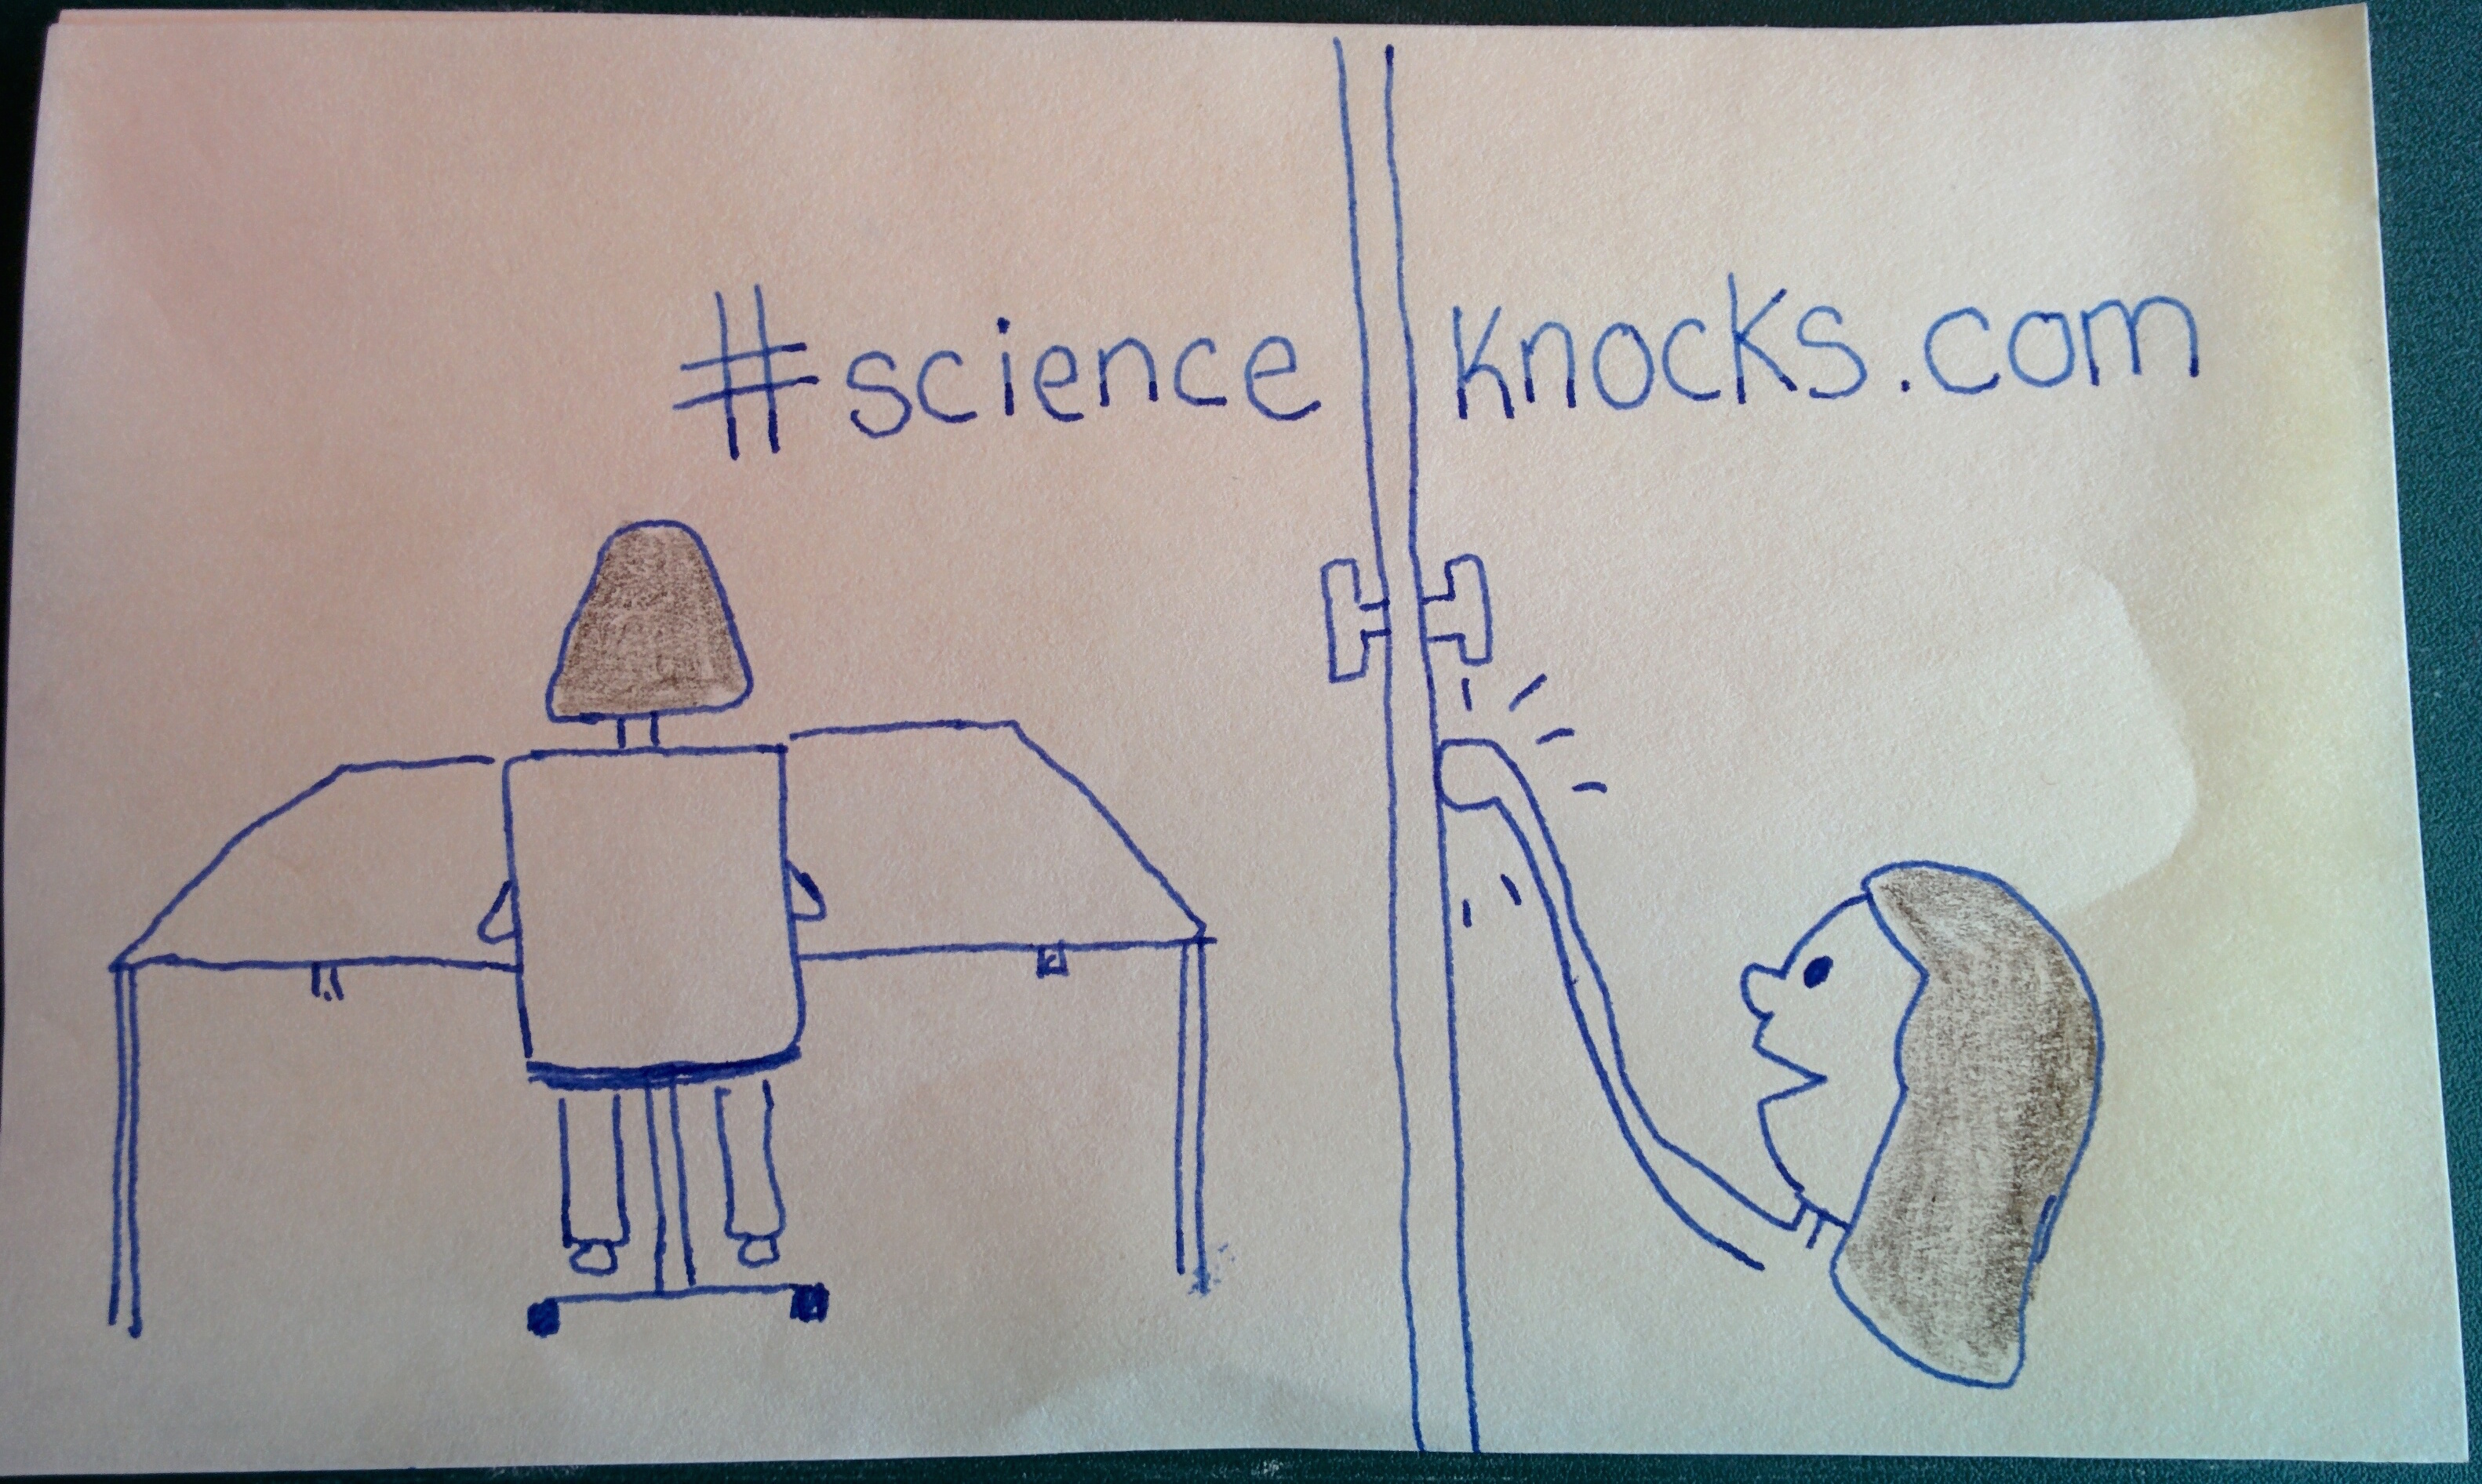 #science knocks.com